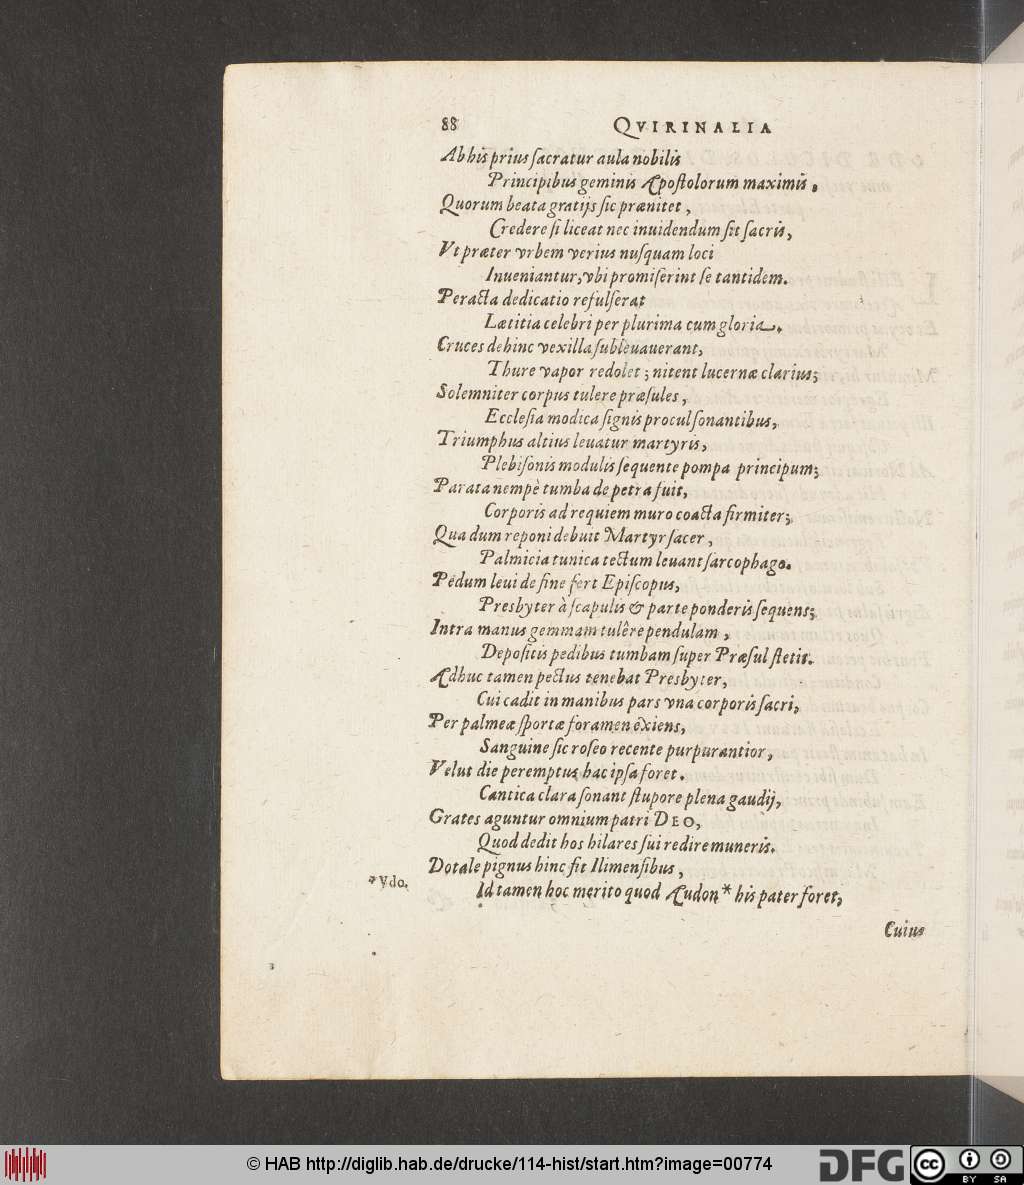 88 QVIRINALIA
Ab his prius sacratur aula nobilis
Principibus geminis Apostolorum maximis.
Quorum beata gratijs sic prænitet,
Credere si liceat nec inuidendum sit sacris,
Vt præter vrbem verius nusquam loci
Inueniantur, vbi promiserint se tantidem.
Peracta dedicatio refulserat
Lætitia celebri per plurima cum gloria.
Cruces dehinc vexilla subleuauerant,
Thure vapor redolet; nitent lucernæ clarius;
Solemniter corpus tulere præsules,
Ecclesia modica signis procul sonantibus,
Triumphus altius leuatur martyris,
Plebisonis modulis sequente pompa principum;
Parata nempè tumba de petra fuit,
Corporis ad requiem muro coacta firmiter;
Qua dum reponi debuit Martyr sacer,
Palmicia tunica tectum leuant sarcophago.
Pedum leui de fine fert Episcopus,
Presbyter à scapulis & parte ponderis sequens;
Intra manus gemmam tulêre pendulam,
Depositis pedibus tumbam super Præsul stetit.
Adhuc tamen pectus tenebat Presbyter,
Cui cadit in manibus pars vna corporis sacri,
Per palmeæ sportæ foramen exiens,
Sanguine sic roseo recente purpurantior,
Velut die peremptus hac ipsa foret.
Cantica clara sonant stupore plena gaudij,
Grates aguntur omnium patri DEO,
Quod dedit hos hilares sui redire muneris.
Dotale pignus hinc fit Ilimensibus,
*Vdo.
Id tamen hoc merito quod Audon* his pater foret,
Cuius
© HAB http://diglib.hab.de/drucke/114-hist/start.htm?image=00774
DFG
cc BY SA